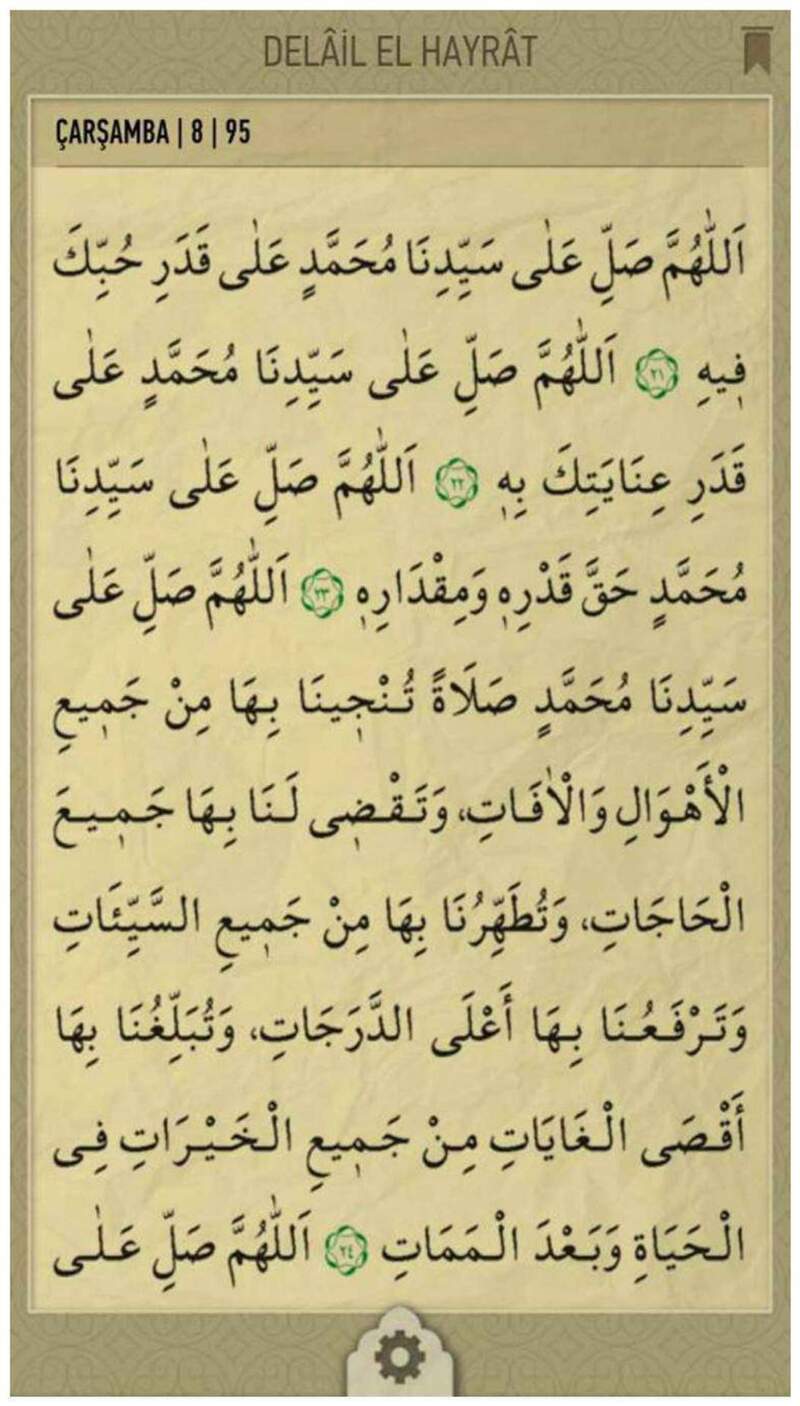 DELÂİL EL HAYRÂT
ÇARŞAMBA | 8 | 95
اَللّٰهُمَّ صَلِّ عَلٰى سَيِّدِنَا مُحَمَّدٍ عَلٰى قَدَرِ حُبِّكَ
فٖيهِ ٢١ اَللّٰهُمَّ صَلِّ عَلٰى سَيِّدِنَا مُحَمَّدٍ عَلٰى
قَدَرِ عِنَايَتِكَ بِهٖ ٢٢ اَللّٰهُمَّ صَلِّ عَلٰى سَيِّدِنَا
مُحَمَّدٍ حَقَّ قَدْرِهٖ وَمِقْدَارِهٖ ٢٣ اَللّٰهُمَّ صَلِّ عَلٰى
سَيِّدِنَا مُحَمَّدٍ صَلَاةً تُنْجٖينَا بِهَا مِنْ جَمٖيعِ
الْأَهْوَالِ وَالْاٰفَاتِ، وَتَقْضٖى لَنَا بِهَا جَمٖيعَ
الْحَاجَاتِ، وَتُطَهِّرُنَا بِهَا مِنْ جَمٖيعِ السَّيِّئَاتِ
وَتَرْفَعُنَا بِهَا أَعْلَى الدَّرَجَاتِ، وَتُبَلِّغُنَا بِهَا
أَقْصَى الْغَايَاتِ مِنْ جَمٖيعِ الْخَيْرَاتِ فِى
الْحَيَاةِ وَبَعْدَ الْمَمَاتِ ٢٤ اَللّٰهُمَّ صَلِّ عَلٰى